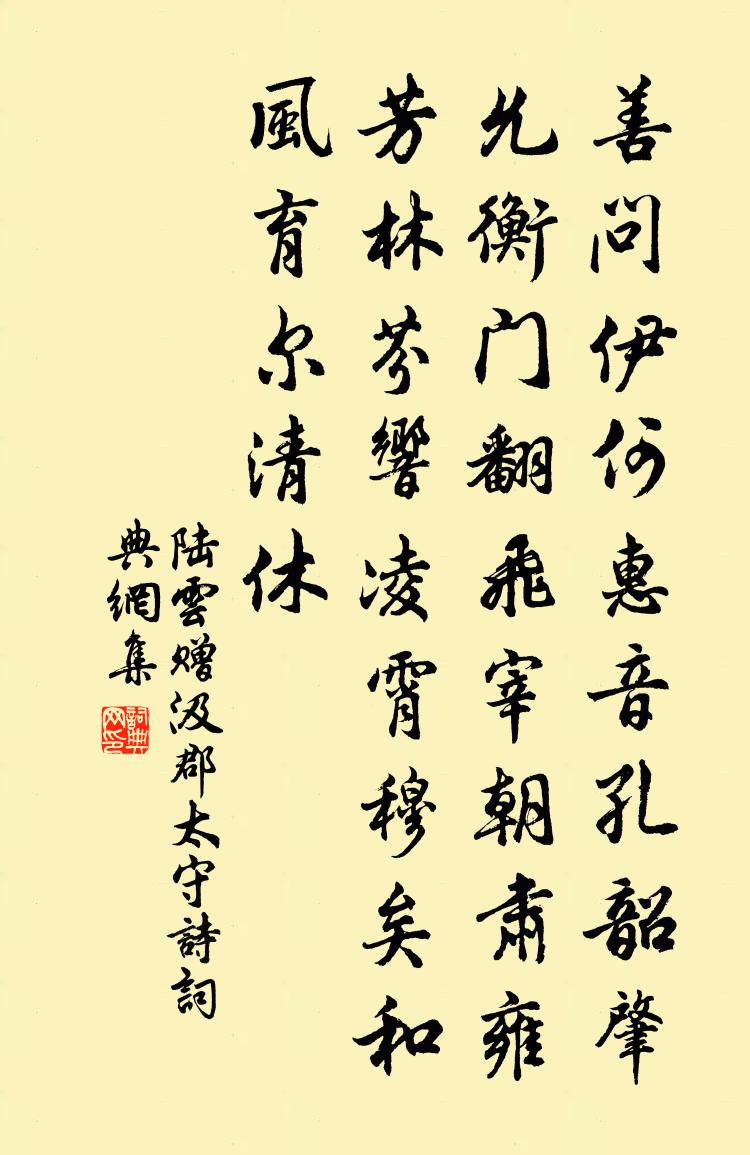 善问伊何惠音孔韶肇
允衡门翻飛宰朝肅雍
芳林芬響凌霄穆矣和
風育尔清休
陆雲赠汲郡太守詩詞
典網集
詞典
网印